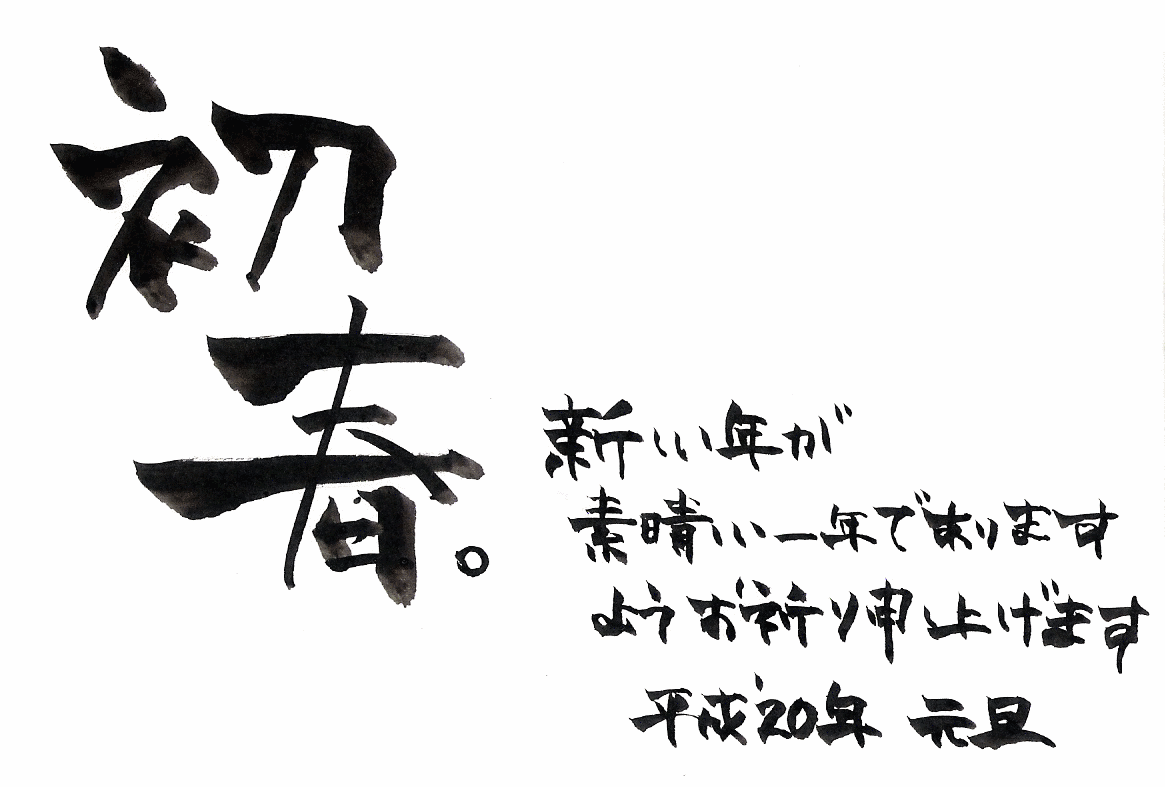 初
春。
新しい年が
素晴しい一年であります
ようお祈り申し上げます
平成20年 元旦